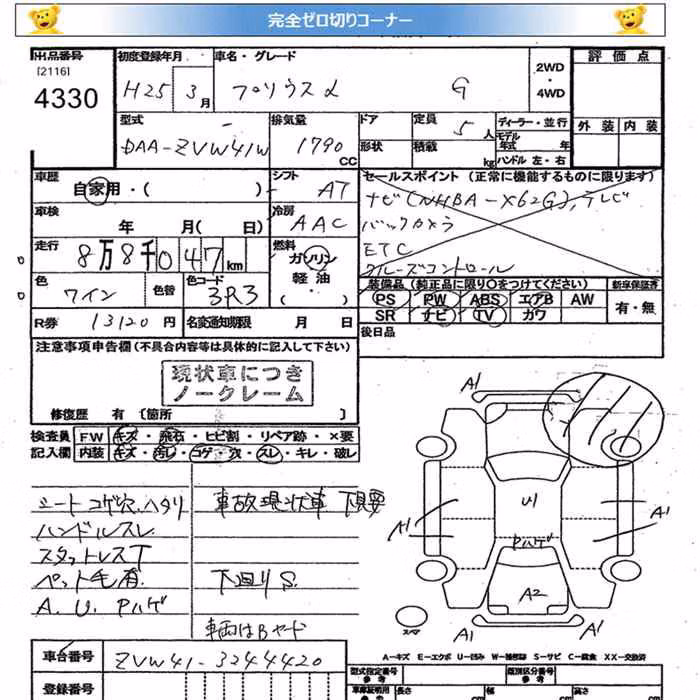 完全ゼロ切りコーナー
出品番号
[2116]
4330
初度登録年月
H25 3月
車名・グレード
プリウスα G
2WD
・
4WD
評価点
外装 内装
型式
DAA-ZVW41W
排気量
1790 CC
ドア
形状
定員
5人
積載
kg
ディーラー・並行
モデル年式 年
ハンドル 左・右
車歴
自家用・( )
シフト
AT
セールスポイント (正常に機能するものに限ります)
ナビ(NHBA-X62G),テレビ
バックカメラ
ETC
クルーズコントロール
車検
年 月( 日)
冷房
AAC
走行
8万8千047km
燃料
ガソリン
軽油・
・( )
色
ワイン
色替
色コード
3R3
装備品 (純正品に限り○をつけてください)
PS PW ABS エアB AW
SR ナビ TV カワ
新車保証書
有・無
R券 13120円
名変通知期限 月 日
後日品
注意事項申告欄(不具合内容等は具体的に記入して下さい)
現状車につき
ノークレーム
修復歴 有〔箇所 〕
検査員
記入欄
FW キズ・飛石・ヒビ割・リペア跡・×要
内装 キズ・汚レ・コゲ・穴・スレ・キレ・破レ
シートコゲ穴.ヘタリ
ハンドルスレ
スタットレスT
ペット毛有.
A.U.Pハゲ
事故現状車 下見要
下廻りS.
車両はBヤード
A1
A1
A1
U1
Pハゲ
A2
A1
A1
スペア
A1
A1
A-キズ E-エクボ U-凹み W-補修跡 S-サビ C-腐食 XX-交換済
車台番号
ZVW41-3244420
登録番号
型式指定番号
参考
類別区分番号
参考
車庫証明用
長さ cm
幅 cm
高さ cm